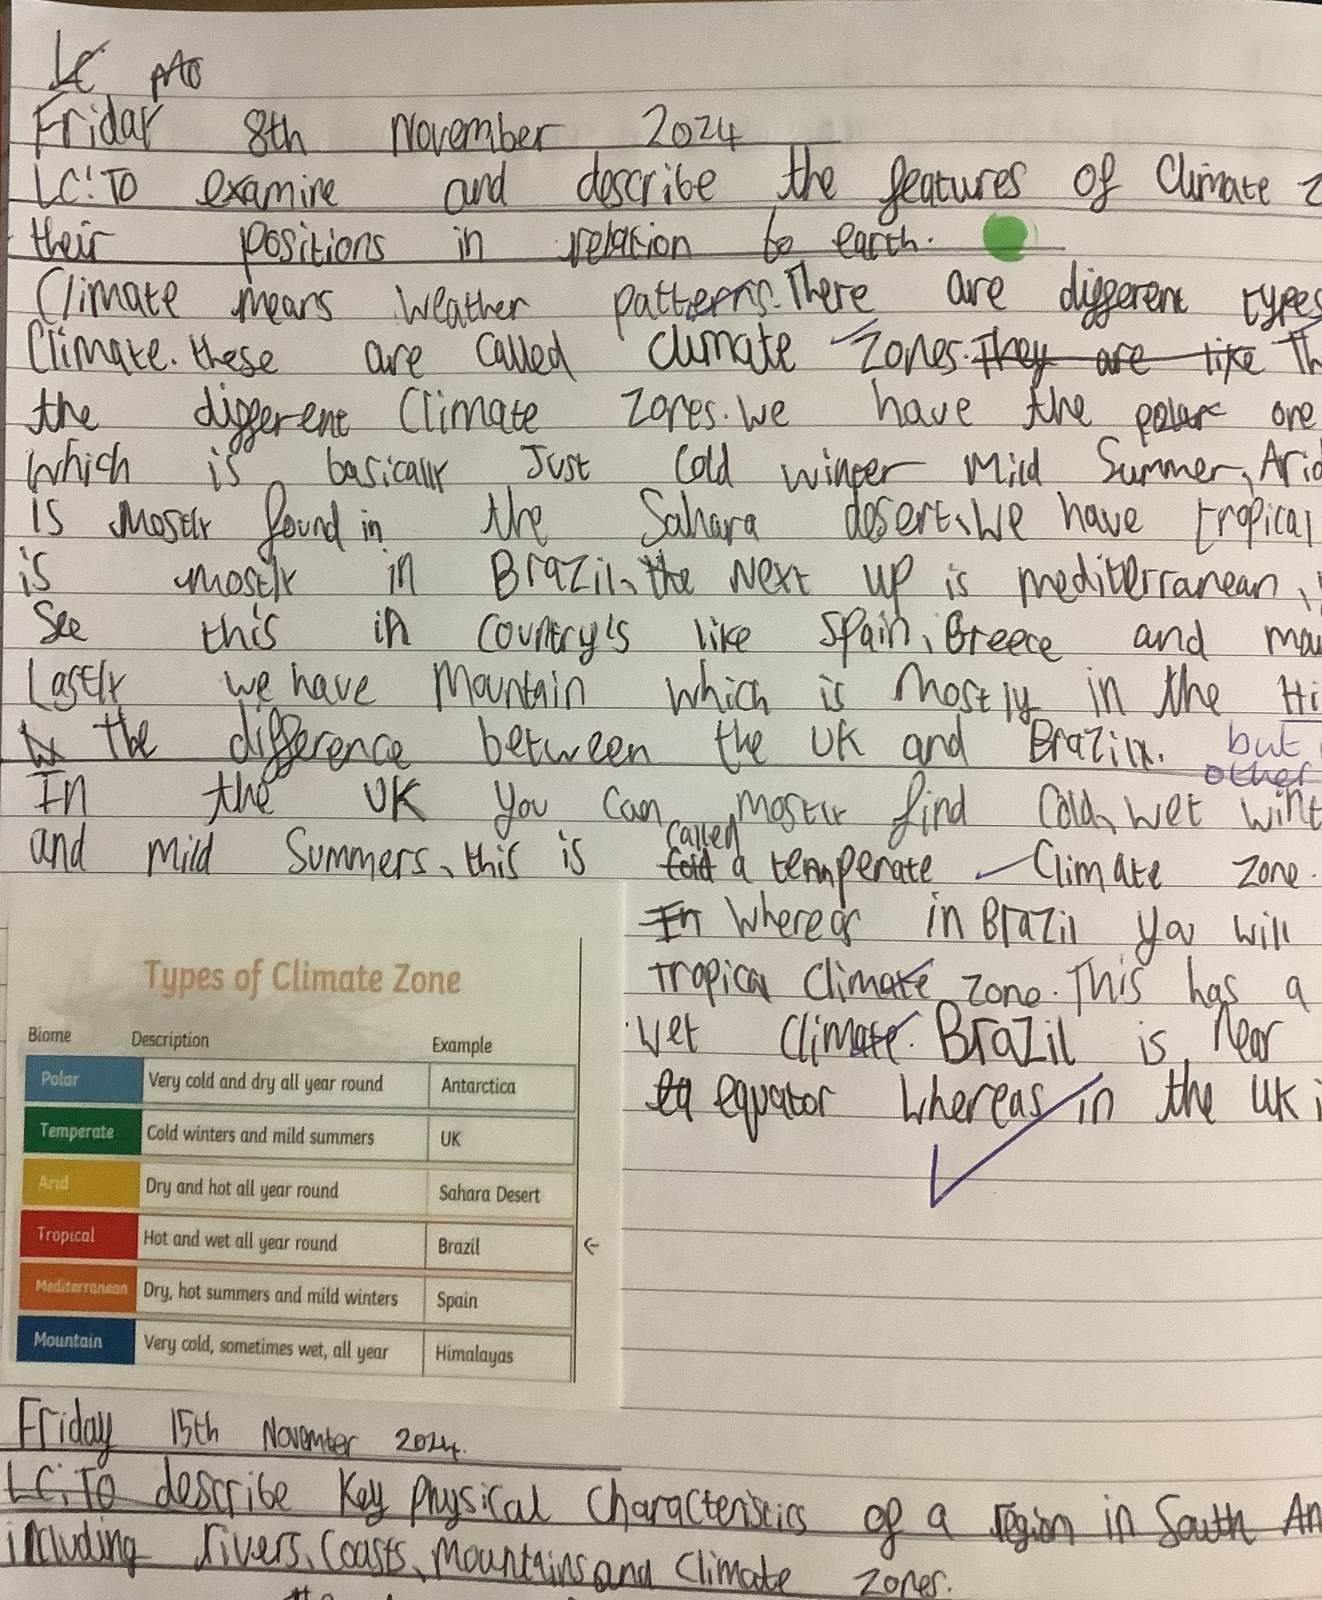 LC
Friday 8th November 2024
LC: To examine and describe the features of Climate
their positions in relation to earth.
Climate means weather patterns. There are different types
Climate. these are called climate zones. They are like
the different Climate zones. We have the polar one
which is basically Just cold winter mild Summer, Arid
is mostly found in the Sahara desert, We have tropical
is mostly in Brazil, the Next up is mediterranean,
See this in country's like Spain, Greece and
Lastly we have Mountain which is mostly in the Hi
the difference between the UK and Brazil. but
other
In the UK you can mostly find Cold, wet wint
called
and mild Summers, this is a temperate Climate zone.
In Whereas in Brazil you will
Tropical Climate zone. This has a
wet Climate. Brazil is near
eq equator whereas in the UK i
Types of Climate Zone
Biome Description Example
Polar Very cold and dry all year round Antarctica
Temperate Cold winters and mild summers UK
Arid Dry and hot all year round Sahara Desert
Tropical Hot and wet all year round Brazil
Mediterranean Dry, hot summers and mild winters Spain
Mountain Very cold, sometimes wet, all year Himalayas
Friday 15th November 2024.
LC: To describe Key Physical Characteristics of a region in South Am
including rivers, Coasts, mountains and Climate zones.